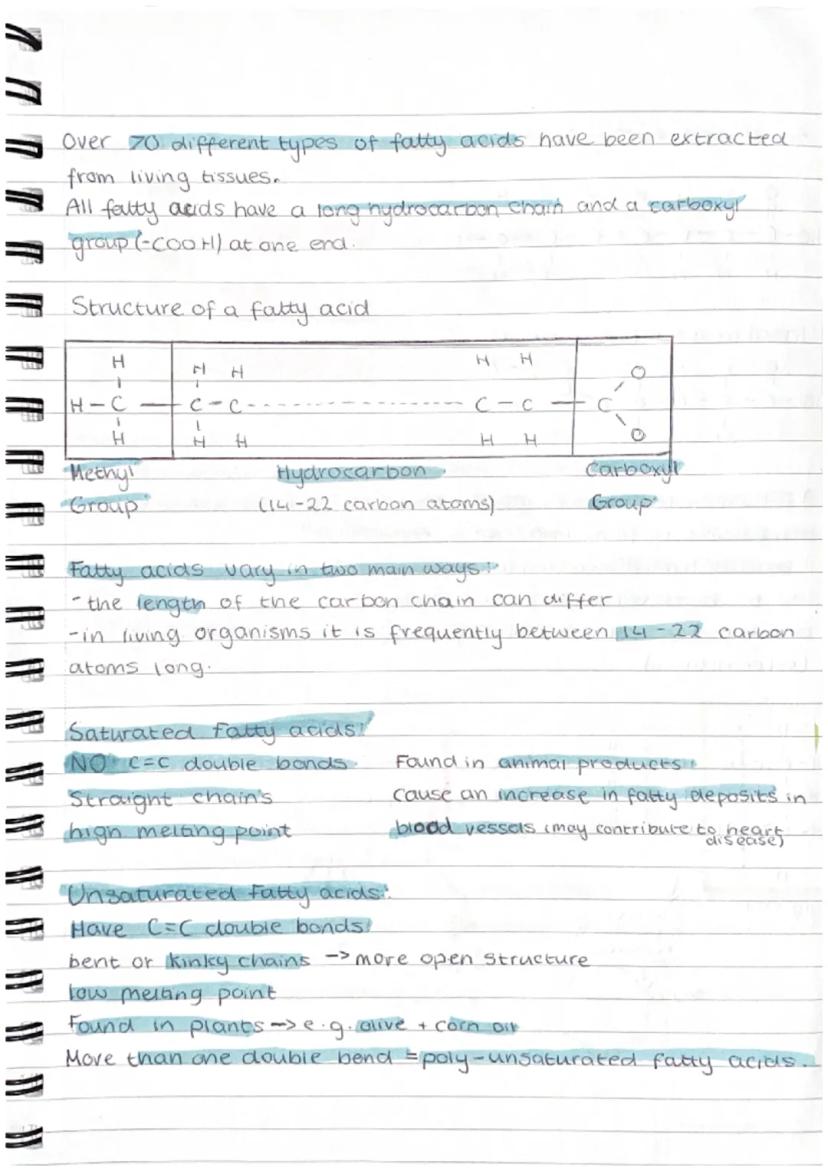 Over 70 different types of fatty acids have been extracted
from living tissues.
All fatty acids have a long hydrocarbon chain and a carboxyl
group (-COOH) at one end.
Structure of a fatty acid
H H H H H
H - C - C - C - - - - - - - - - - - - - - - C - C - C O
H H H H H O
Methyl Hydrocarbon Carboxyl
Group (14-22 carbon atoms) Group
Fatty acids vary in two main ways:
- the length of the carbon chain can differ
- in living organisms it is frequently between 14-22 carbon
atoms long.
Saturated Fatty acids:
NO C=C double bonds Found in animal products.
Straight chain's cause an increase in fatty deposits in
high melting point blood vessels (may contribute to heart
disease)
Unsaturated Fatty acids:
Have C=C double bonds
bent or kinky chains -> more open structure
low melting point
Found in plants -> e.g. olive + corn oil
More than one double bend = poly-unsaturated fatty acids.